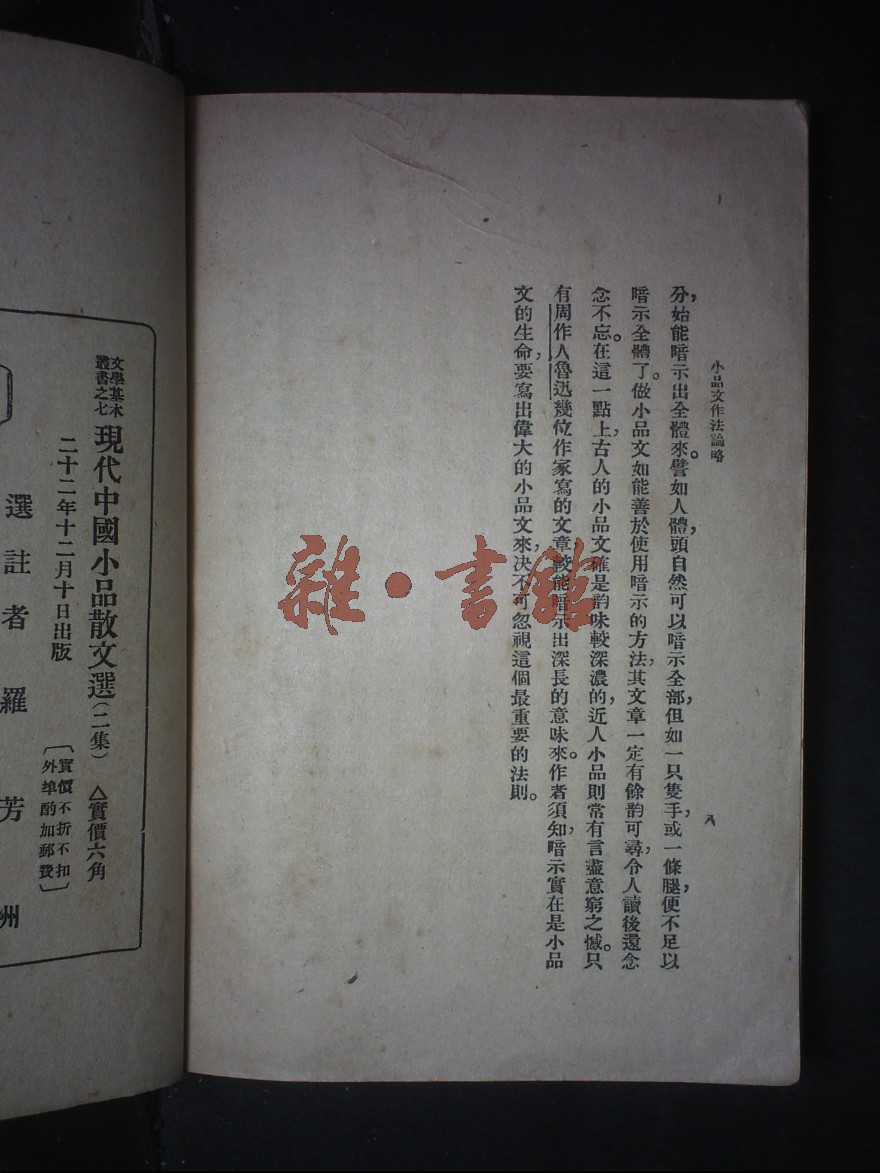 小品文作法論略
八
分，始能暗示出全體來。譬如人體，頭自然可以暗示全部，但如一只隻手，或一條腿，便不足以
暗示全體了。做小品文如能善於使用暗示的方法，其文章一定有餘韵可尋，令人讀後還念
念不忘。在這一點上，古人的小品文確是韵味較深濃的，近人小品則常有言盡意窮之憾。只
有周作人魯迅幾位作家寫的文章，較能暗示出深長的意味來。作者須知，暗示實在是小品
文的生命，要寫出偉大的小品文來，決不可忽視這個最重要的法則。
文學基本
叢書之七
現代中國小品散文選（二集）
△實價六角
二十二年十二月十日出版
實價不折不扣
外埠酌加郵費
選註者羅芳洲
雜·書館